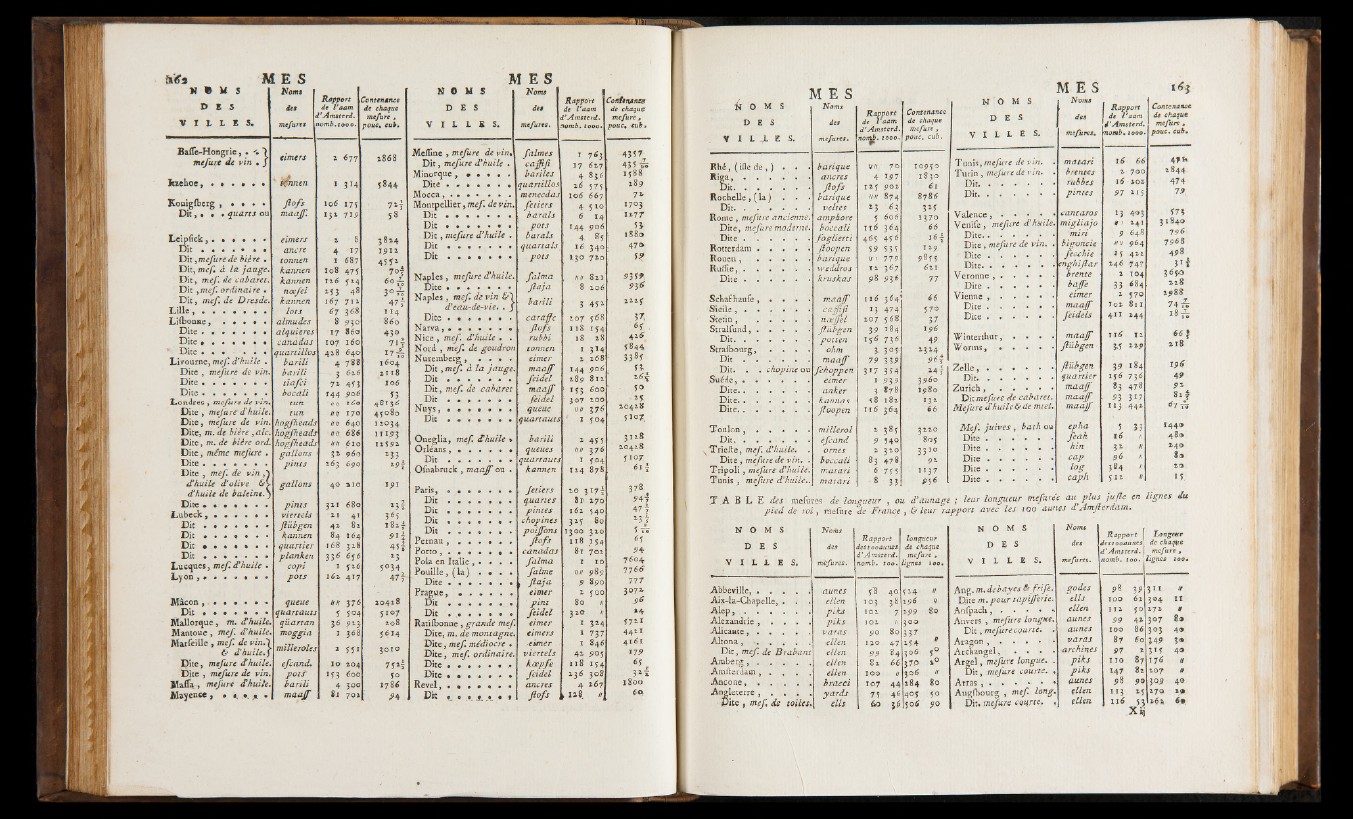 162 MES MES
NOMS DES VILLES. Noms des mesures Rapport de l'aam d'Amsterd. nomb. 1000. Contenance de chaque mesure, pouc. cub.
Basse-Hongrie, mesure de vin. eimers 2 677 2868
Itzehoe, 1 314 5844
Konigsberg, stofs 106 175 72½
Dit, . . quarts ou maass. 132 719 58
Leipsick, eimers 2 8 3824
Dit ancre 4 17 1912
Dit, mesure de bière. tonnen 1 687 4552
Dit, mes. à la jauge. kannen 108 475
Dit, mes. de cabaret. kannen 126 524
Dit, mes. ordinaire. nœsel 253 48
Dit, mes. de Dresde. kannen 167 712
Lille, lots 67 368 114
Lisbonne, almudes 8 930 860
Dite alquieres 17 860 430
Dite canadas 107 160
Dite quartillos 428 640
Livourne, mes. d'huile. barili 4 788 1604
Dite, mesure de vin. barili 3 626 2118
Dite fiasci 72 453 106
Dite bocali 144 906 53
Londres, mesure de vin. tun 〃 160 48156
Dite, mesure d'huile. tun 〃 170 45080
Dite, mesure de vin. hogsheads 〃 640 12034
Dite, m. de bière, alc. hogsheads 〃 686 11193
Dite, m. de bière ord. hogsheads 〃 610 12592
Dite, même mesure. gallons 32 960 233
Dite pints 263 690
Dite, mes. de vin, d'huile d'olive & d'huile de baleine. gallons 40 210 191
Dite pints 321 680
Lubeck, viertels 21 41 365
Dit stübgen 42 82
Dit kannen 84 164
Dit quartier 168 328
Dit planken 336 656 23
Lucques, mes. d'huile. copi 1 526 5034
Lyon, pots 162 417
Mâcon, queue 〃 376 20428
Dit quartauts 1 504 5107
Mallorque, m. d'huile. quartan 36 923 208
Mantoue, mes. d'huile. moggia 1 368 5614
Marseille, mes. de vin. & d'huile. milleroles 2 551 3010
Dite, mesure d'huile. escand. 10 204
Dite, mesure de vin. pots 153 600 50
Massa, mesure d'huile. barili 4 300 1786
Mayence, maass 81 702 94
NOMS DES VILLES. Noms des mesures. Rapport de l'aam d'Amsterd. nomb. 1000. Contenance de chaque mesure, pouc. cub.
Messine, mesure de vin. salmes 1 763 4357
Dit, mesure d'huile. caffisi 17 627
Minorque, bariles 4 836 1588
Dite quartillos 26 575 289
Mocca, memecdas 106 667 72
Montpellier, mes. de vin. setiers 4 510 1703
Dit barals 6 14 1277
Dit pots 144 906 53
Dit, mesure d'huile. barals 4 85 1880
Dit quartals 16 340 470
Dit pots 130 720 59
Naples, mesure d'huile. salma 〃 821 9359
Dite staja 8 206 936
Naples, mes. de vin & d'eau-de-vie. barili 3 452 2225
Dite caraffe 207 568 37
Narva, stofs 118 154 65
Nice, mes. d'huile. rubbi 18 28 426
Nord, mes. de goudron tonnen 1 314 5844
Nuremberg, eimer 2 268 3385
Dit, mes. à la jauge. maass 144 906 53
Dit seidel 289 812
Dit, mes. de cabaret maass 153 600 50
Dit seidel 307 200 25
Nuys, queue 〃 376 20428
Dit quartauts 1 504 5107
Oneglia, mes. d'huile barili 2 455 3128
Orléans, queues 〃 376 20428
Dit quartauts 1 504 5107
Osnabruck, maass ou. kannen 124 878
Paris, setiers 20 317½ 378
Dit quartes 81 270
Dit pintes 162 540
Dit chopines 325 80
Dit poissons 1300 320
Pernau, stofs 118 154 65
Porto, canadas 81 702 94
Pola en Italie, salma 1 10 7604
Pouille, (la) salme 〃 989 7766
Dite staja 9 890 777
Prague, eimer 2 500 3072
Dit pint 80 〃 96
Dit seidel 320 〃 24
Ratisbonne, grande mes. eimer 1 324 5721
Dite, m. de montagne. eimers 1 737 4421
Dite, mes. médiocre. eimer 1 846 4161
Dite, mes. ordinaire. viertels 42 905 179
Dite kœpfe 118 154 65
Dite seidel 236 308
Revel, ancres 4 267 1800
Dit stofs 128 〃 60
MES MES 163
NOMS DES VILLES. Noms des mesures. Rapport de l'aam d'Amsterd. nomb. 1000. Contenance de chaque mesure, pouc. cub.
Rhé, (isle de,) barique 〃 70 10950
Riga, ancres 4 197 1830
Dit. stofs 125 902 61
Rochelle, (la) barique 〃 874 8786
Dit. veltes 23 63 325
Rome, mesure ancienne. amphore 5 606 1370
Dite, mesure moderne. boccali 116 364 66
Dite foglietti 465 456
Rotterdam stoopen 59 535 129
Rouen, barique 〃 779 9855
Russie, weddros 12 367 621
Dite kruskas 98 936 77
Schafhause, maass 116 364 66
Sicile, caffisi 13 474 570
Stetin, nœssel 207 568 37
Stralsund, stübgen 39 184 196
Dit. potten 156 736 49
Strasbourg, ohm 3 305 2324
Dit. maass 79 339
Dit. chopine ou schoppen 317 354
Suéde, eimer 1 939 3960
Dite. anker 3 878 1980
Dite. kannas 58 182 132
Dite. stoopen 116 364 66
Toulon, millerol 2 385 3220
Dit. escand 9 540 805
Trieste, mes. d'huile. ornes 2 320 3310
Dite, mesure de vin. boccali 83 478 92
Tripoli, mesure d'huile. matari 6 755 1137
Tunis, mesure d'huile. matari 8 33 956
NOMS DES VILLES. Noms des mesures. Rapport de l'aam d'Amsterd. nomb. 1000. Contenance de chaque mesure, pouc. cub.
Tunis, mesure de vin. matari 16 66 478
Turin, mesure de vin. brentes 2 700 2844
Dit. rubbes 16 202 474
Dit. pintes 97 215 79
Valence, cantaros 13 403 573
Venise, mesure d'huile. migliajo 〃 241 31840
Dite. miri 9 648 796
Dite, mesure de vin. bigoncie 〃 964 7968
Dite secchie 15 422 498
Dite. enghistar 246 747
Veronne, brente 2 104 3650
Dite basse 33 684 228
Vienne, eimer 2 570 2988
Dite maass 102 811
Dite seidels 411 244
Winterthur, maass 116 12
Worms, stübgen 35 229 218
Zelle, stübgen 39 184 196
Dit. quartier 156 736 49
Zurich, maass 83 478 92
Dit mesure de cabaret. maass 93 317
Mesure d'huile & de miel. maass 113 442
Mes. juives, bath ou epha 5 33 1440
Dite seah 16 〃 480
Dite hin 32 〃 240
Dite cap 96 〃 80
Dite log 384 〃 20
Dite caph 512 〃 15
TABLE des mesures de longueur, ou d'aunage; leur longueur mesurée au plus juste en lignes du
pied de roi, mesure de France, & leur rapport avec les 100 aunes d'Amsterdam.
NOMS DES VILLES. Noms des mesures. Rapport des 100 aunes d'Amsterd. nomb. 100. longueur de chaque mesure, lignes 100.
Abbeville, aunes 58 40 524 〃
Aix-la-Chapelle, ellen 103 38 296 〃
Alep, piks 102 7 299 80
Alexandrie, piks 102 〃 300
Alicante, varas 90 80 337
Altona, ellen 120 47 254 〃
Dit, mes. de Brabant ellen 99 84 306 50
Amberg, ellen 82 66 370 20
Amsterdam, ellen 100 〃 306 〃
Ancone, bracci 107 44 284 80
Angleterre, yards 75 46 405 50
Dite, mes. de toiles. ells 60 36 506 90
NOMS DES VILLES. Noms des mesures. Rapport des 100 aunes d'Amsterd. nomb. 100. Longueur de chaque mesure, lignes 100.
Ang. m. de bayes & frise. godes 98 39 311 〃
Dite m. pour tapisserie. ells 100 62 304 11
Anspach, ellen 112 50 272 〃
Anvers, mesure longue. aunes 99 42 307 80
Dit, mesure courte. aunes 100 86 303 40
Aragon, varas 87 60 349 30
Archangel, archines 97 2 315 40
Argel, mesure longue. piks 110 87 176 〃
Dit, mesure courte. piks 147 82 207 〃
Arras, aunes 98 90 309 40
Augsbourg, mes. long. ellen 113 25 270 20
Dit. mesure courte. ellen 116 53 262 60
X ij